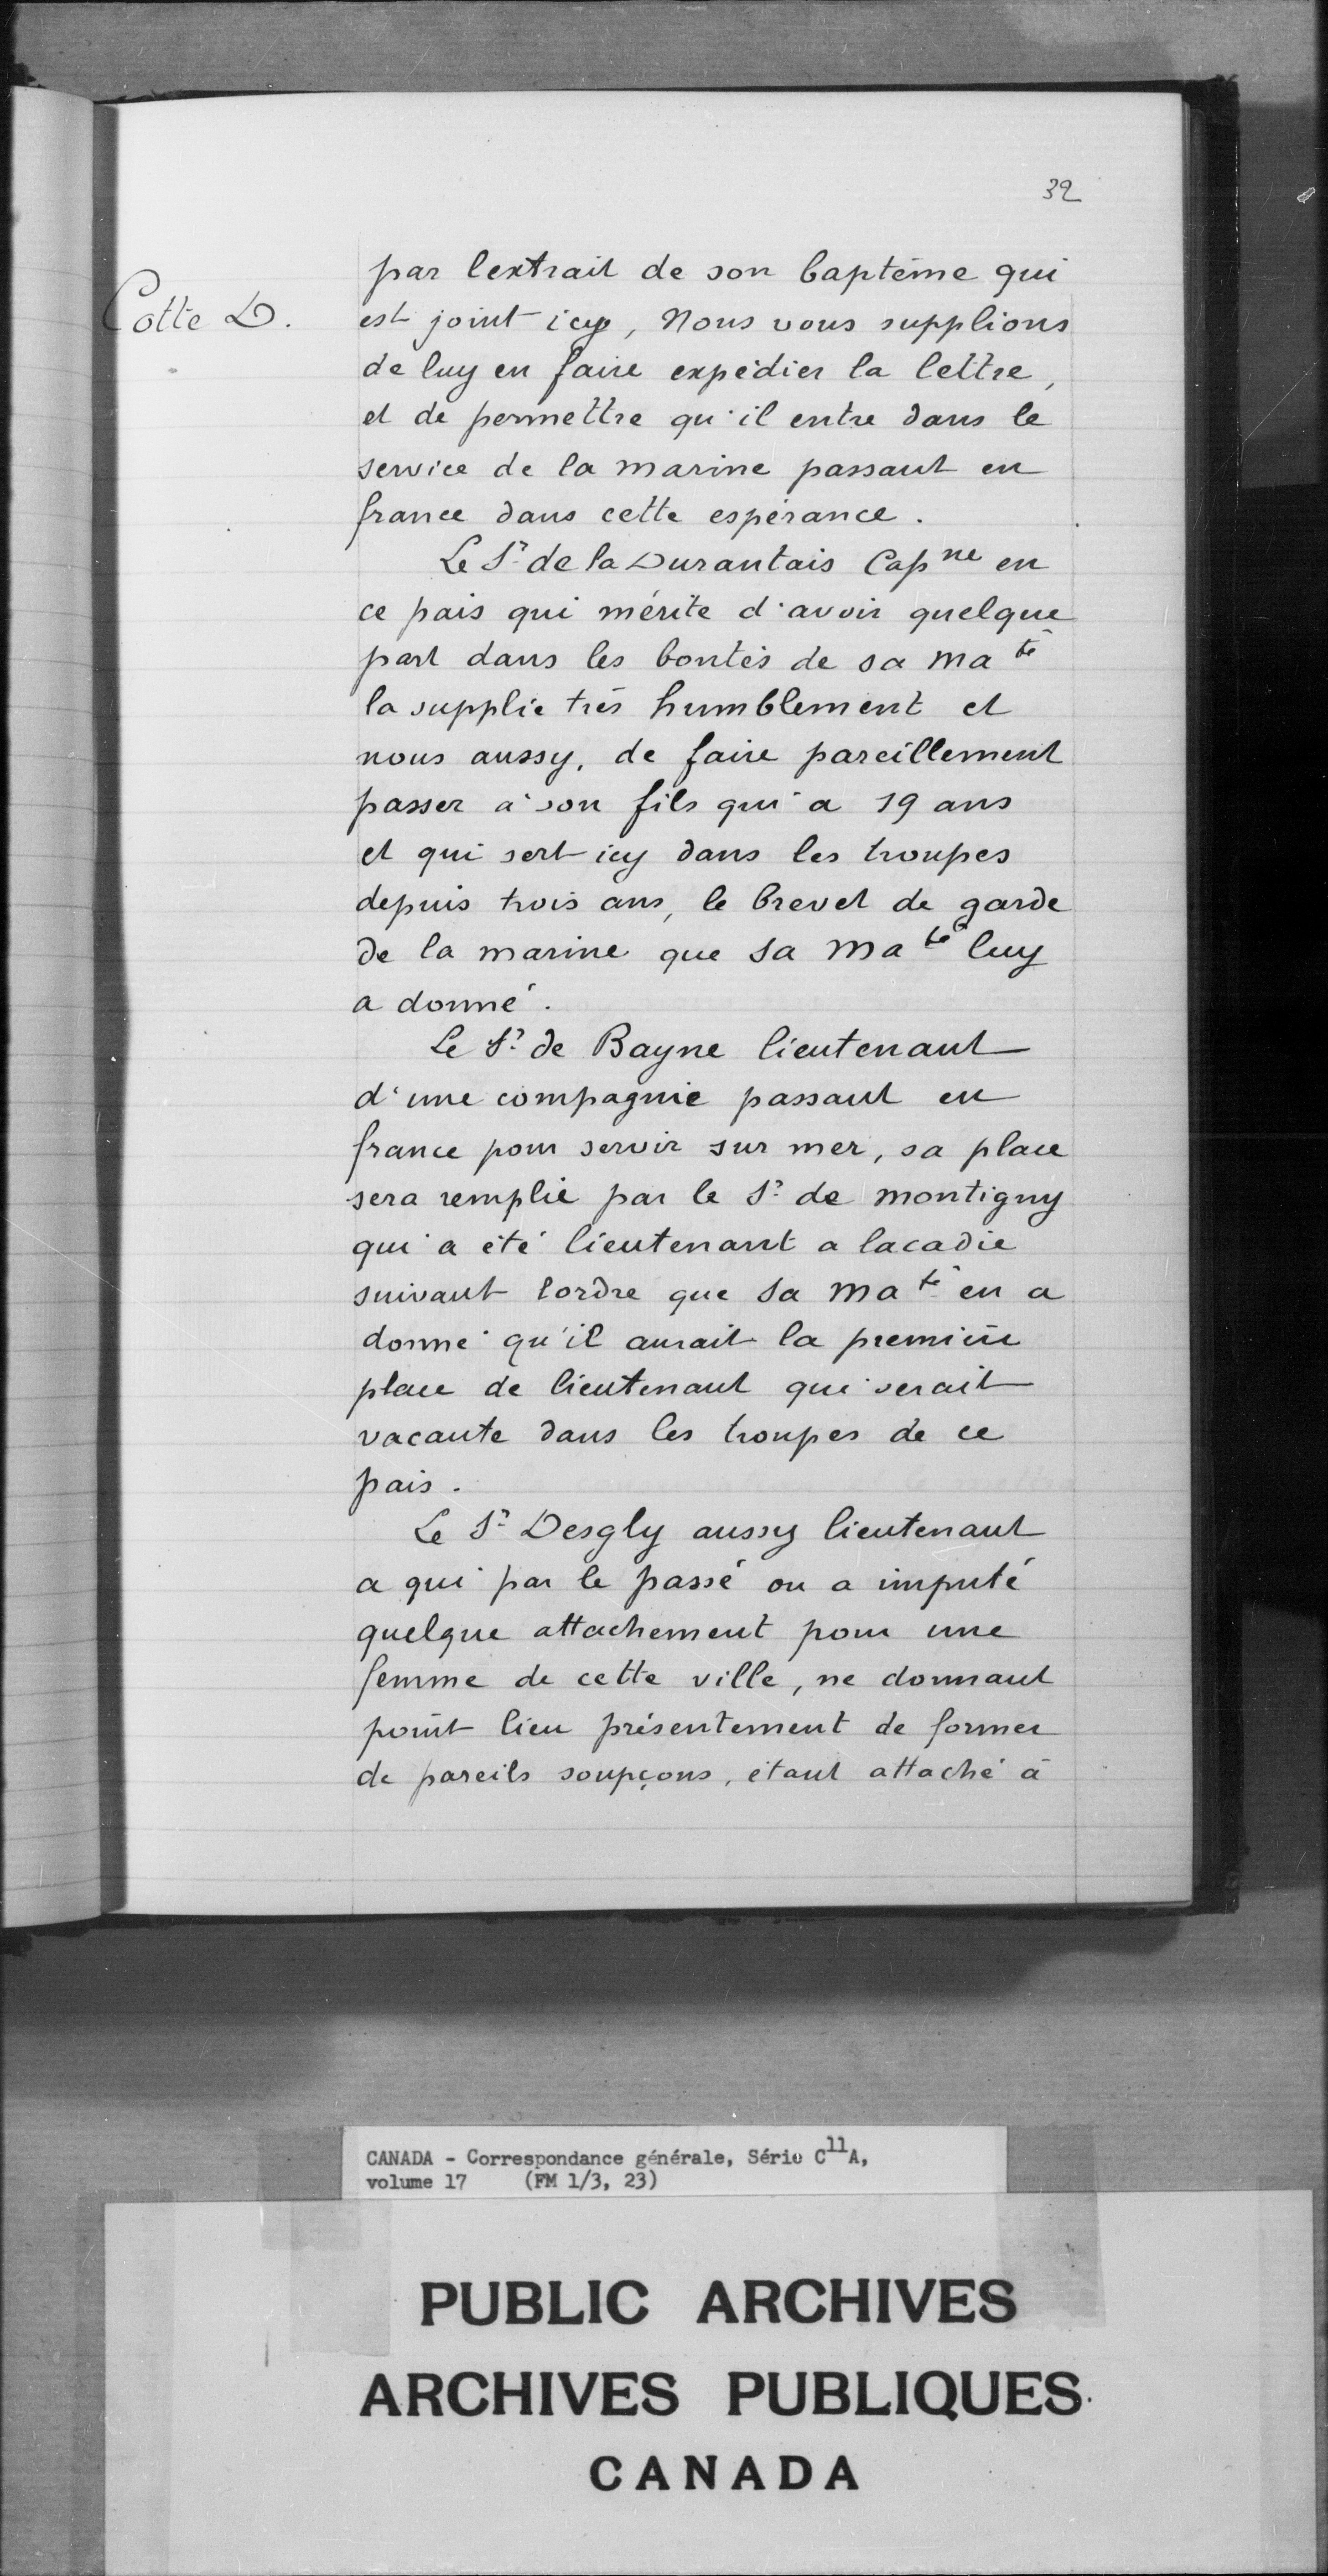 32
par lextrait de son baptême qui
Cotte D.
est joint icy, Nous vous supplions
de luy en faire expédier la lettre,
et de permettre qu'il entre dans le
service de la marine passant en
france dans cette espérance.
Le Sr de la Durantais Capne en
ce pais qui mérite d'avoir quelque
part dans les bontés de sa Maté
la supplie très humblement et
nous aussy, de faire pareillement
passer a son fils qui a 19 ans
et qui sert icy dans les troupes
depuis trois ans, le brevet de garde
de la marine que Sa Maté luy
a donné.
Le Sr de Bayne lieutenant
d'une compagnie passant en
france pour servir sur mer, sa place
sera remplie par le Sr de montigny
qui a été lieutenant a lacadie
suivant lordre que Sa Maté en a
donné qu'il aurait la première
place de lieutenant qui serait
vacante dans les troupes de ce
pais.
Le Sr Desgly aussy lieutenant
a qui par le passé on a imputé
quelque attachement pour une
femme de cette ville, ne donnant
point lieu présentement de former
de pareils soupçons, étant attaché à
CANADA - Correspondance générale, Série C11A,
volume 17 (FM 1/3, 23)
PUBLIC ARCHIVES
ARCHIVES PUBLIQUES
CANADA